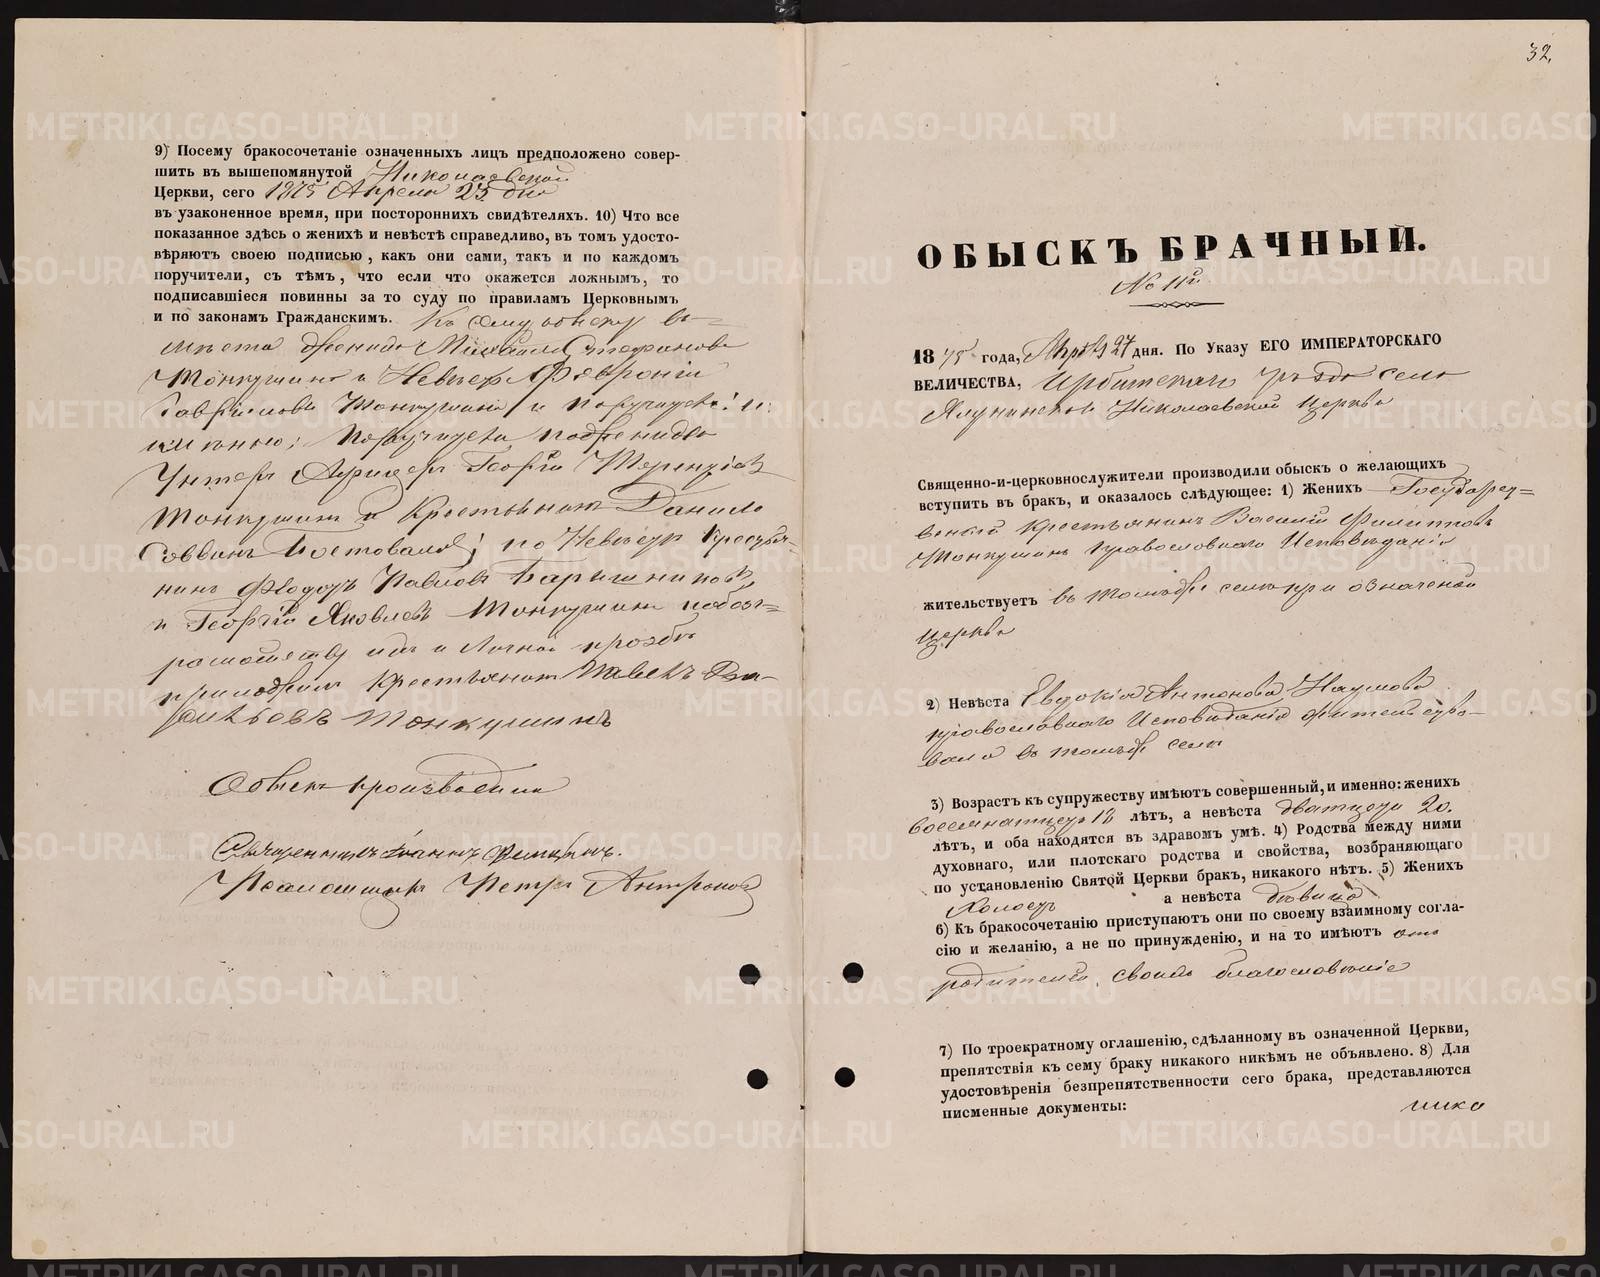 9) Посему бракосочетаніе означенныхъ лицъ предположено совер-
шить въ вышепомянутой Николаевской
Церкви, сего 1875 Апреля 25 дня
въ узаконенное время, при постороннихъ свидѣтеляхъ. 10) Что все
показанное здѣсь о женихѣ и невѣстѣ справедливо, въ томъ удосто-
вѣряютъ своею подписью, какъ они сами, такъ и по каждомъ
поручители, съ тѣмъ, что если что окажется ложнымъ, то
подписавшіеся повинны за то суду по правиламъ Церковнымъ
и по законамъ Гражданскимъ. Къ сему обыску в-
мѣсто жениха Михаила Стефанова
Тонкушина и Невѣсты Февроніи
Гавриловой Тонкушиной и
по женихѣ
Унтеръ Афицеръ Георгій Терентьев
Тонкушинъ и Крестьянинъ Данило
Саввинъ Постоваловъ; по Невѣсте Крестья-
нинъ Федоръ Павловъ Барышниковъ
и Георгій Яковлевъ Тонкушинъ
ихъ и Личной прозбѣ
приложилъ Крестьянинъ Павелъ Ва-
сильевъ Тонкушинъ
Обыскъ производили
Священникъ Іоаннъ
Псаломщикъ Петръ Антропов
32.
ОБЫСКЪ БРАЧНЫЙ.
№ 11й
1875 года, Апрѣля 27 дня. По Указу ЕГО ИМПЕРАТОРСКАГО
ВЕЛИЧЕСТВА, Ирбитскаго уѣзда села
Ялунинской Николаевской Церкви
Священно-и-церковнослужители производили обыскъ о желающихъ
вступить въ бракъ, и оказалось слѣдующее: 1) Женихъ Государст-
венный крестьянинъ Василій Филипповъ
Тонкушинъ православнаго Исповѣданія
жительствуетъ въ томъ же селѣ при означеной
Церкви
2) Невѣста Евдокія Антонова Наумова
православнаго Исповиданія жительство-
вала въ томъ же селѣ
3) Возрастъ къ супружеству имѣютъ совершенный, и именно: женихъ
восемнатцеть 18 лѣтъ, а невѣста дватцоти 20.
лѣтъ, и оба находятся въ здравомъ умѣ. 4) Родства между ними
духовнаго, или плотскаго родства и свойства, возбраняющаго
по установленію Святой Церкви бракъ, никакого нѣтъ. 5) Женихъ
Холостъ а невѣста дѣвица
6) Къ бракосочетанію приступаютъ они по своему взаимному согла-
сію и желанію, а не по принужденію, и на то имѣютъ отъ
родителей своихъ благословѣніе
7) По троекратному оглашенію, сдѣланному въ означенной Церкви,
препятствія къ сему браку никакого никѣмъ не объявлено. 8) Для
удостовѣренія безпрепятственности сего брака, представляются
писменные документы:
METRIKI.GASO-URAL.RU